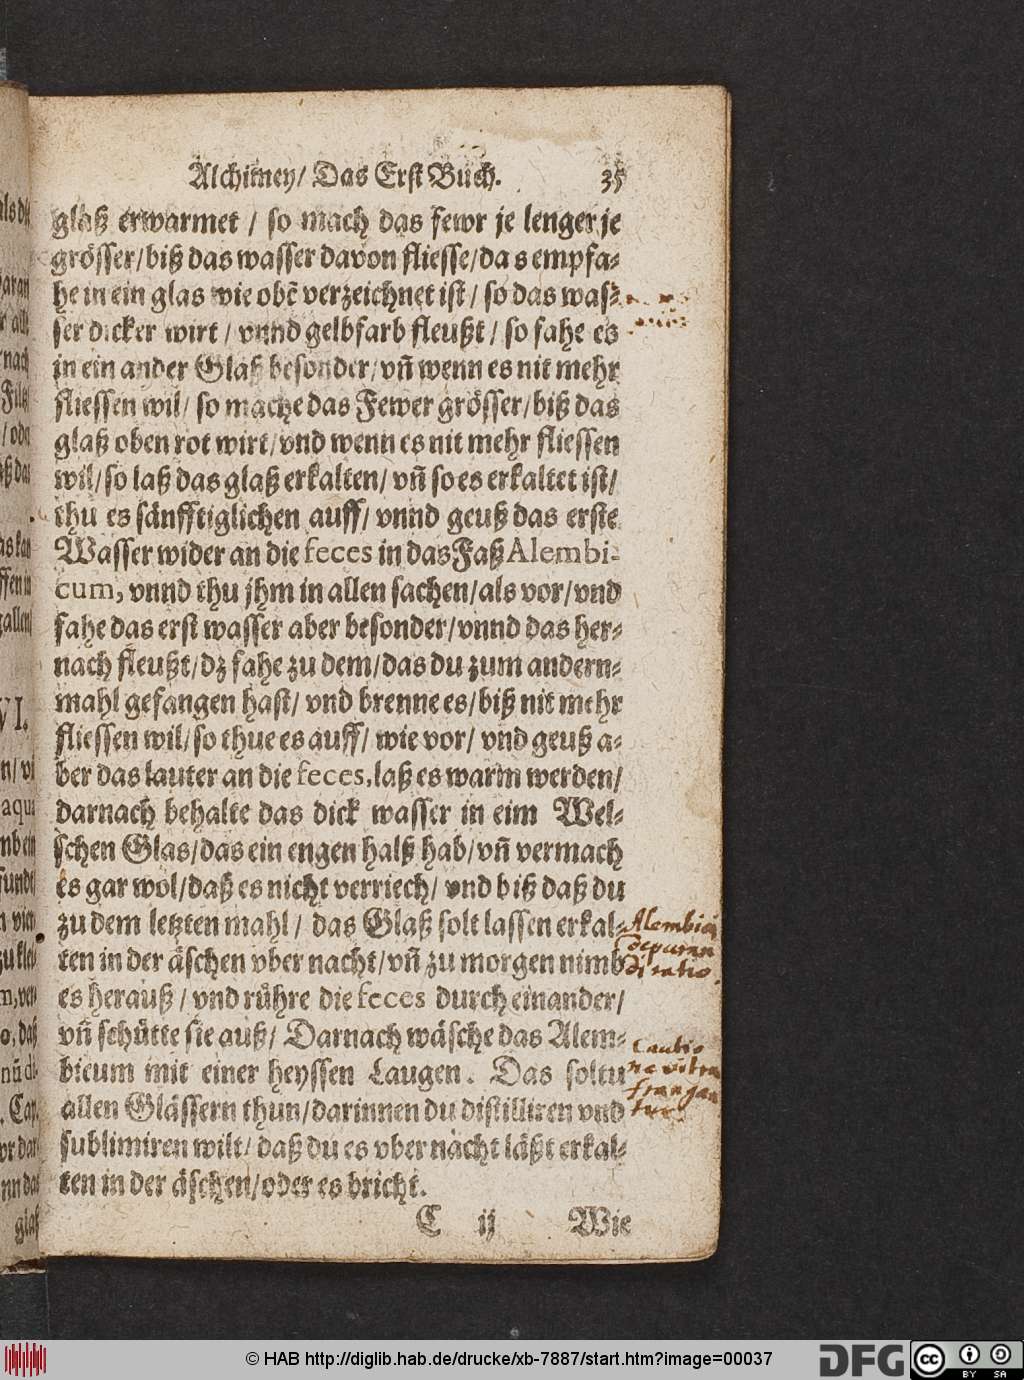 Alchimey/ Das Erst Buch. 35
glaß erwarmet / so mach das fewr je lenger je
grösser/biß das wasser davon fliesse/da s empfa-
he in ein glas wie obẽ verzeichnet ist / so das was-
ser dicker wirt / vnnd gelbfarb fleußt / so fahe es
in ein ander Glaß besonder/vñ wenn es nit mehr
fliessen wil/ so mache das Fewer grösser/biß das
glaß oben rot wirt/vnd wenn es nit mehr fliessen
wil/so laß das glaß erkalten/ vñ so es erkaltet ist/
thu es sänfftiglichen auff/ vnnd geuß das erste
Wasser wider an die feces in das Faß Alembi-
cum, vnnd thu jhm in allen sachen/als vor/vnd
fahe das erst wasser aber besonder/vnnd das her-
nach fleußt/dz fahe zu dem/das du zum andern-
mahl gefangen hast/ vnd brenne es/biß nit mehr
fliessen wil/so thue es auff/ wie vor/ vnd geuß a-
ber das lauter an die feces, laß es warm werden/
darnach behalte das dick wasser in eim Wel-
schen Glas/das ein engen halß hab/vñ vermach
es gar wol/daß es nicht verriech/ vnd biß daß du
zu dem letzten mahl / das Glaß solt lassen erkal-
ten in der äschen vber nacht/vñ zu morgen nimb
es herauß / vnd rühre die feces durch einander/
vñ schütte sie auß/ Darnach wäsche das Alem-
bicum mit einer heyssen Laugen. Das soltu
allen Glässern thun/darinnen du distilliren vnd
sublimiren wilt/ daß du es vber nacht läßt erkal-
ten in der äschen/oder es bricht.
C ij Wie
Alembici
depuran
di ratio.
Cautio
ne vitra
frangan
tur
© HAB http://diglib.hab.de/drucke/xb-7887/start.htm?image=00037
DFG
cc BY SA